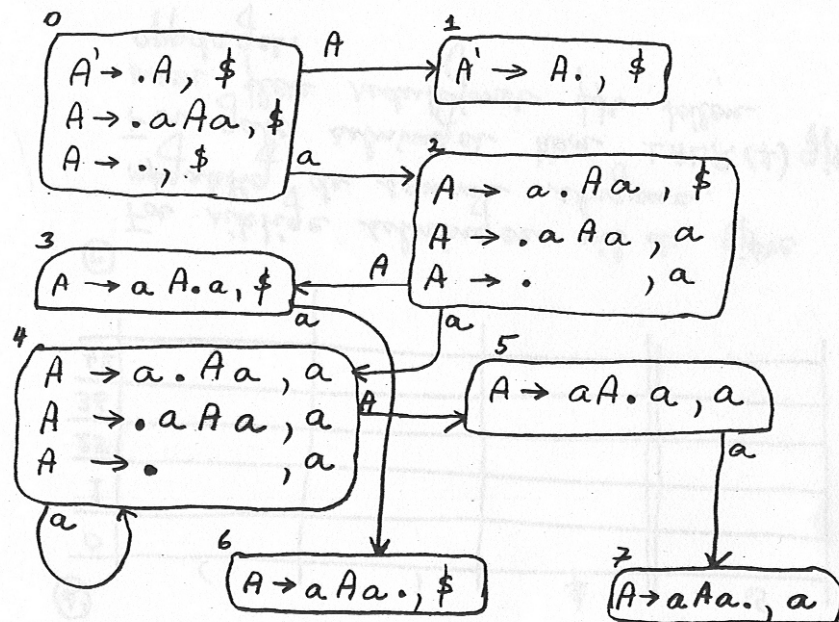 0
A' → .A, $
A → .aAa, $
A → . , $
A
a
1
A' → A., $
2
A → a.Aa, $
A → .aAa, a
A → . , a
A
a
3
A → aA.a, $
a
4
A → a.Aa, a
A → .aAa, a
A → . , a
A
a
5
A → aA.a, a
a
6
A → aAa., $
7
A → aAa., a